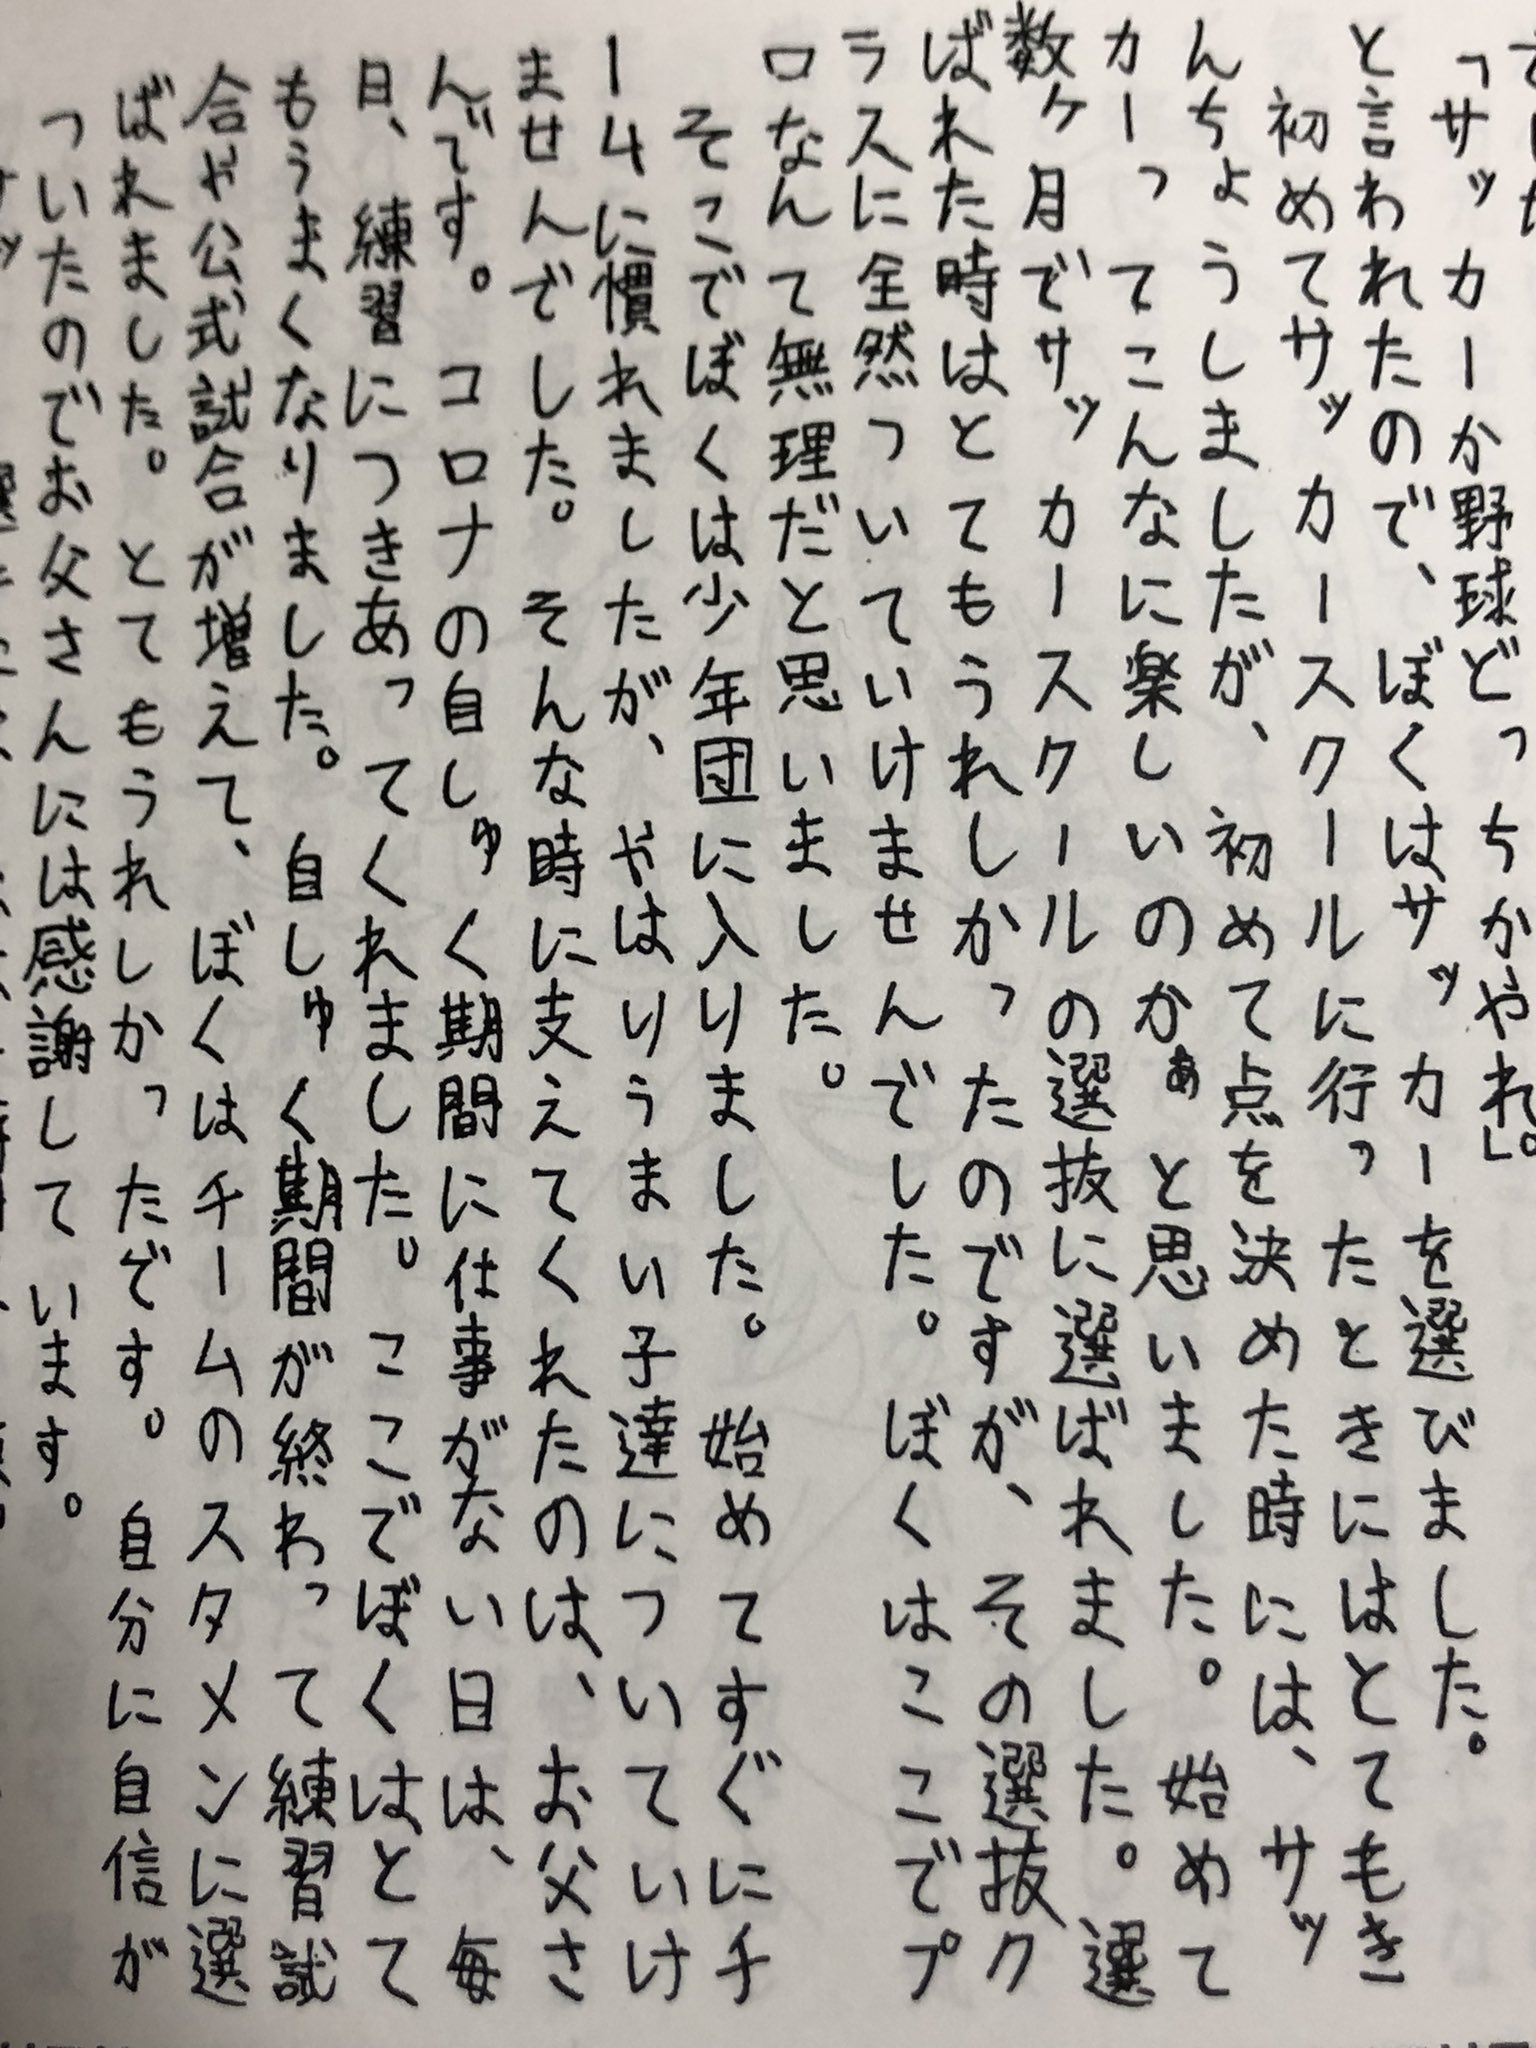 「サッカーか野球どっちかやれ」。
と言われたので、ぼくはサッカーを選びました。
初めてサッカースクールに行ったときにはとてもき
んちょうしましたが、初めて点を決めた時には、サッ
カーってこんなに楽しいのかぁと思いました。始めて
数ヶ月でサッカースクールの選抜に選ばれました。選
ばれた時はとてもうれしかったのですが、その選抜ク
ラスに全然ついていけませんでした。ぼくはここでプ
ロなんて無理だと思いました。
そこでぼくは少年団に入りました。始めてすぐにチ
ームに慣れましたが、やはりうまい子達についていけ
ませんでした。そんな時に支えてくれたのは、お父さ
んです。コロナの自しゅく期間に仕事がない日は、毎
日、練習につきあってくれました。ここでぼくはとて
もうまくなりました。自しゅく期間が終わって練習試
合や公式試合が増えて、ぼくはチームのスタメンに選
ばれました。とてもうれしかったです。自分に自信が
ついたのでお父さんには感謝しています。